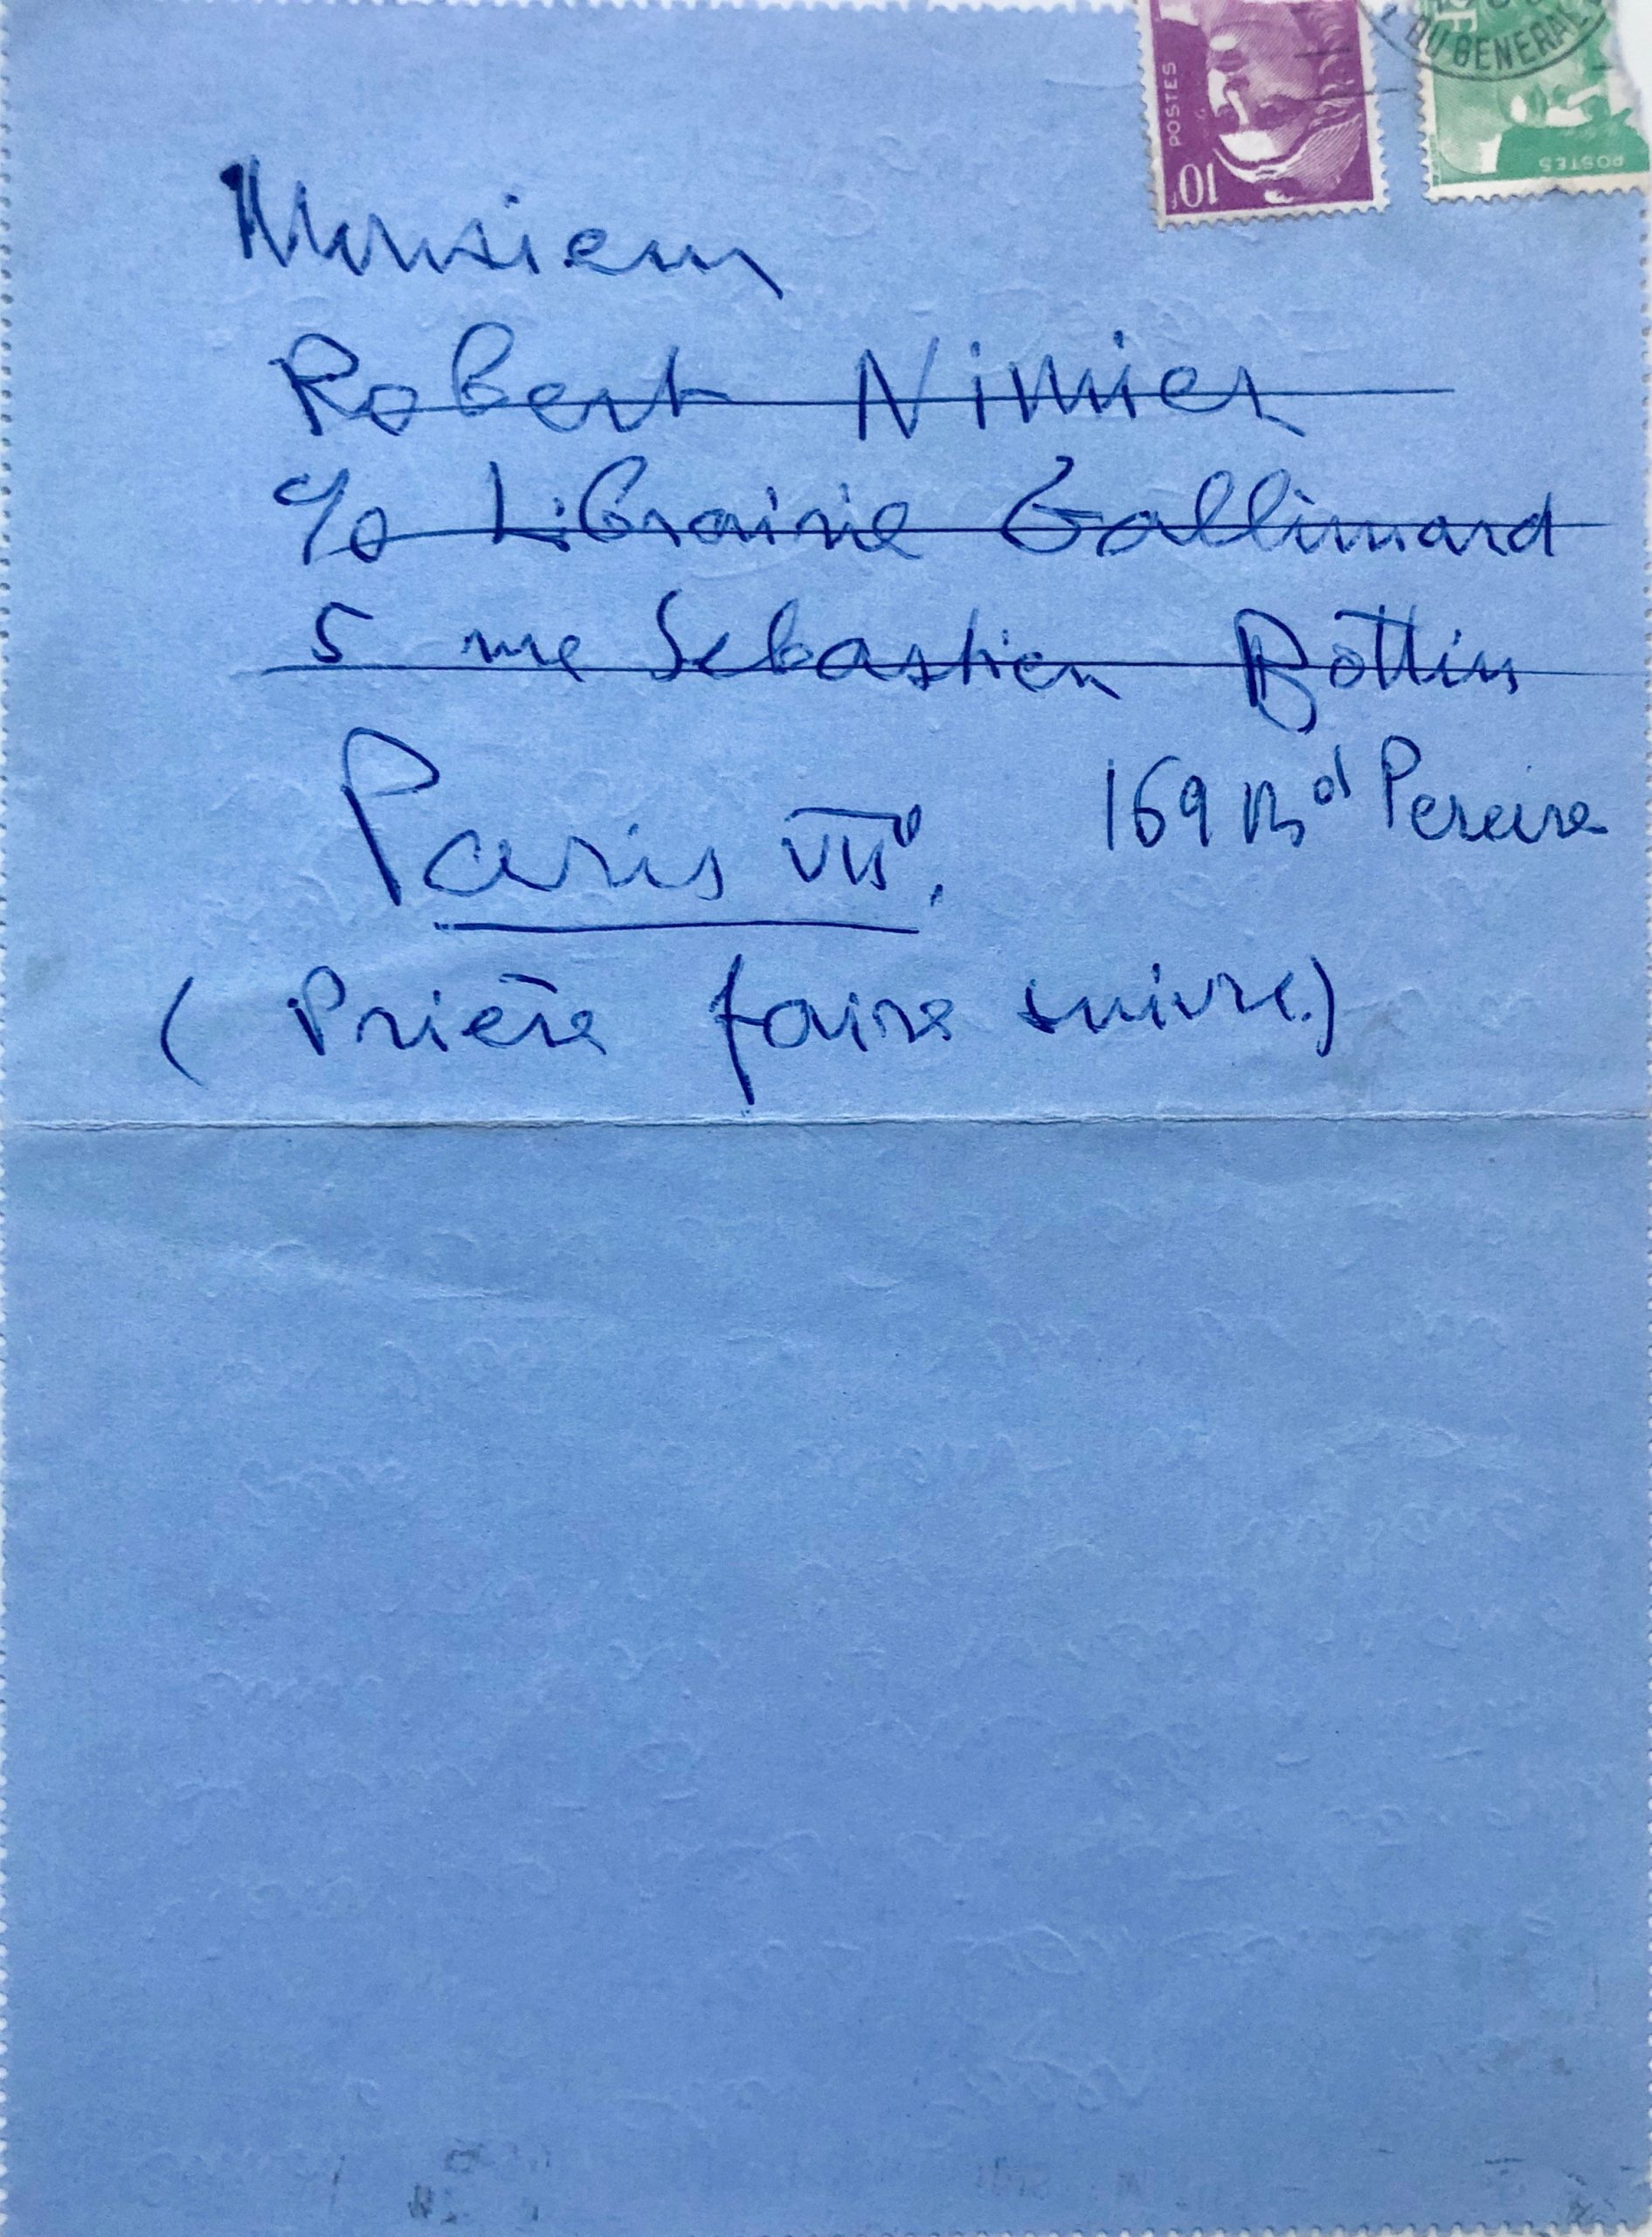 POSTES
10F
DU GENERAL
POSTES
Monsieur
Robert Nimier
c/o Librairie Gallimard
5 rue Sebastien Bottin
Paris VIIe.
169 Bd Pereire
(Prière faire suivre.)